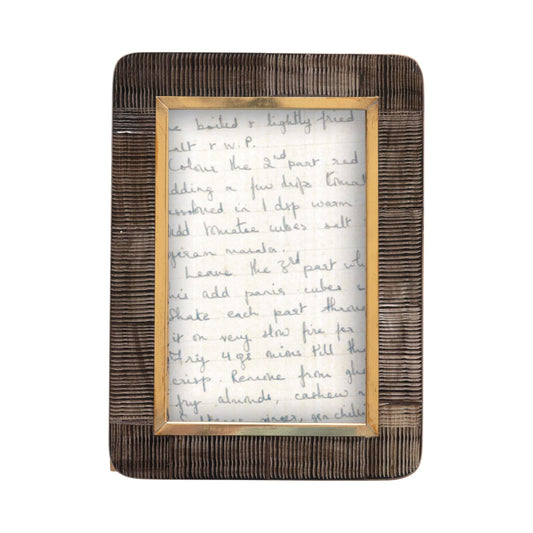 be boiled & lightly fried
alt & W.P.
Colour the 2nd part red
dding a few drops tomat
in 1 dsp warm
add tomatoe cubes salt
garam masala.
Leave the 3rd part whi
add panir cubes
Shake each part throu
it on very slow fire for
Fry 4 onions till th
crisp. Remove from ghe
fry almonds, cashew n
ginger, grn chilli